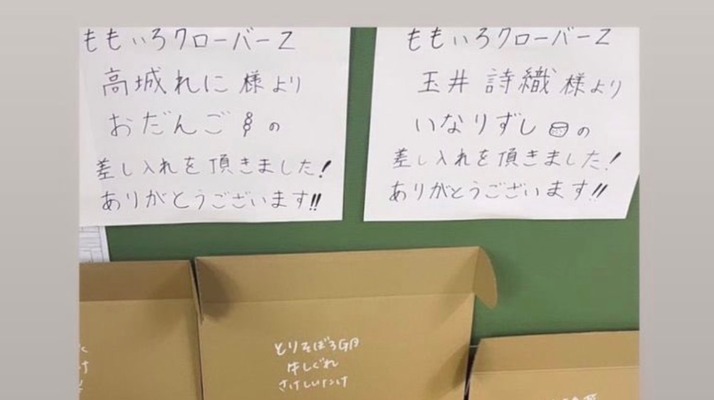 ももいろクローバーZ
高城れに様より
おだんごの
差し入れを頂きました!
ありがとうございます!!
ももいろクローバーZ
玉井詩織様より
いなりずしの
差し入れを頂きました!
ありがとうございます!!
とりそぼろGB
牛しぐれ
さけしいたけ